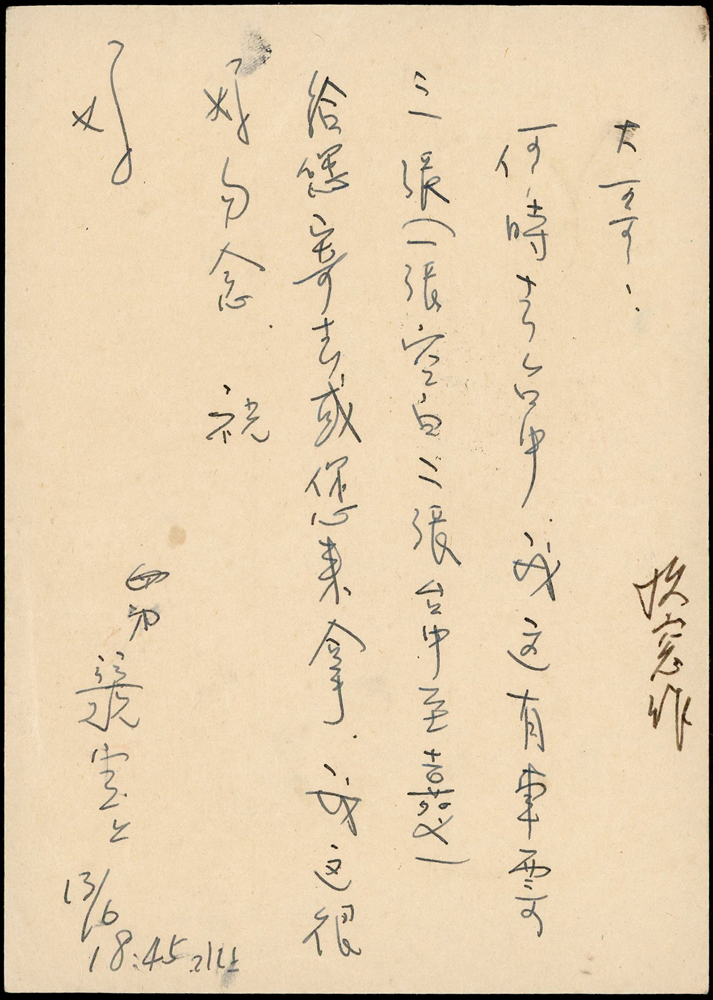 大哥：
何時去台中我这有車票
三張(一張空白二張台中至嘉義)
給您寄去或您来拿.我这很
好勿念. 祝
好
弟
上
13/6
18:45